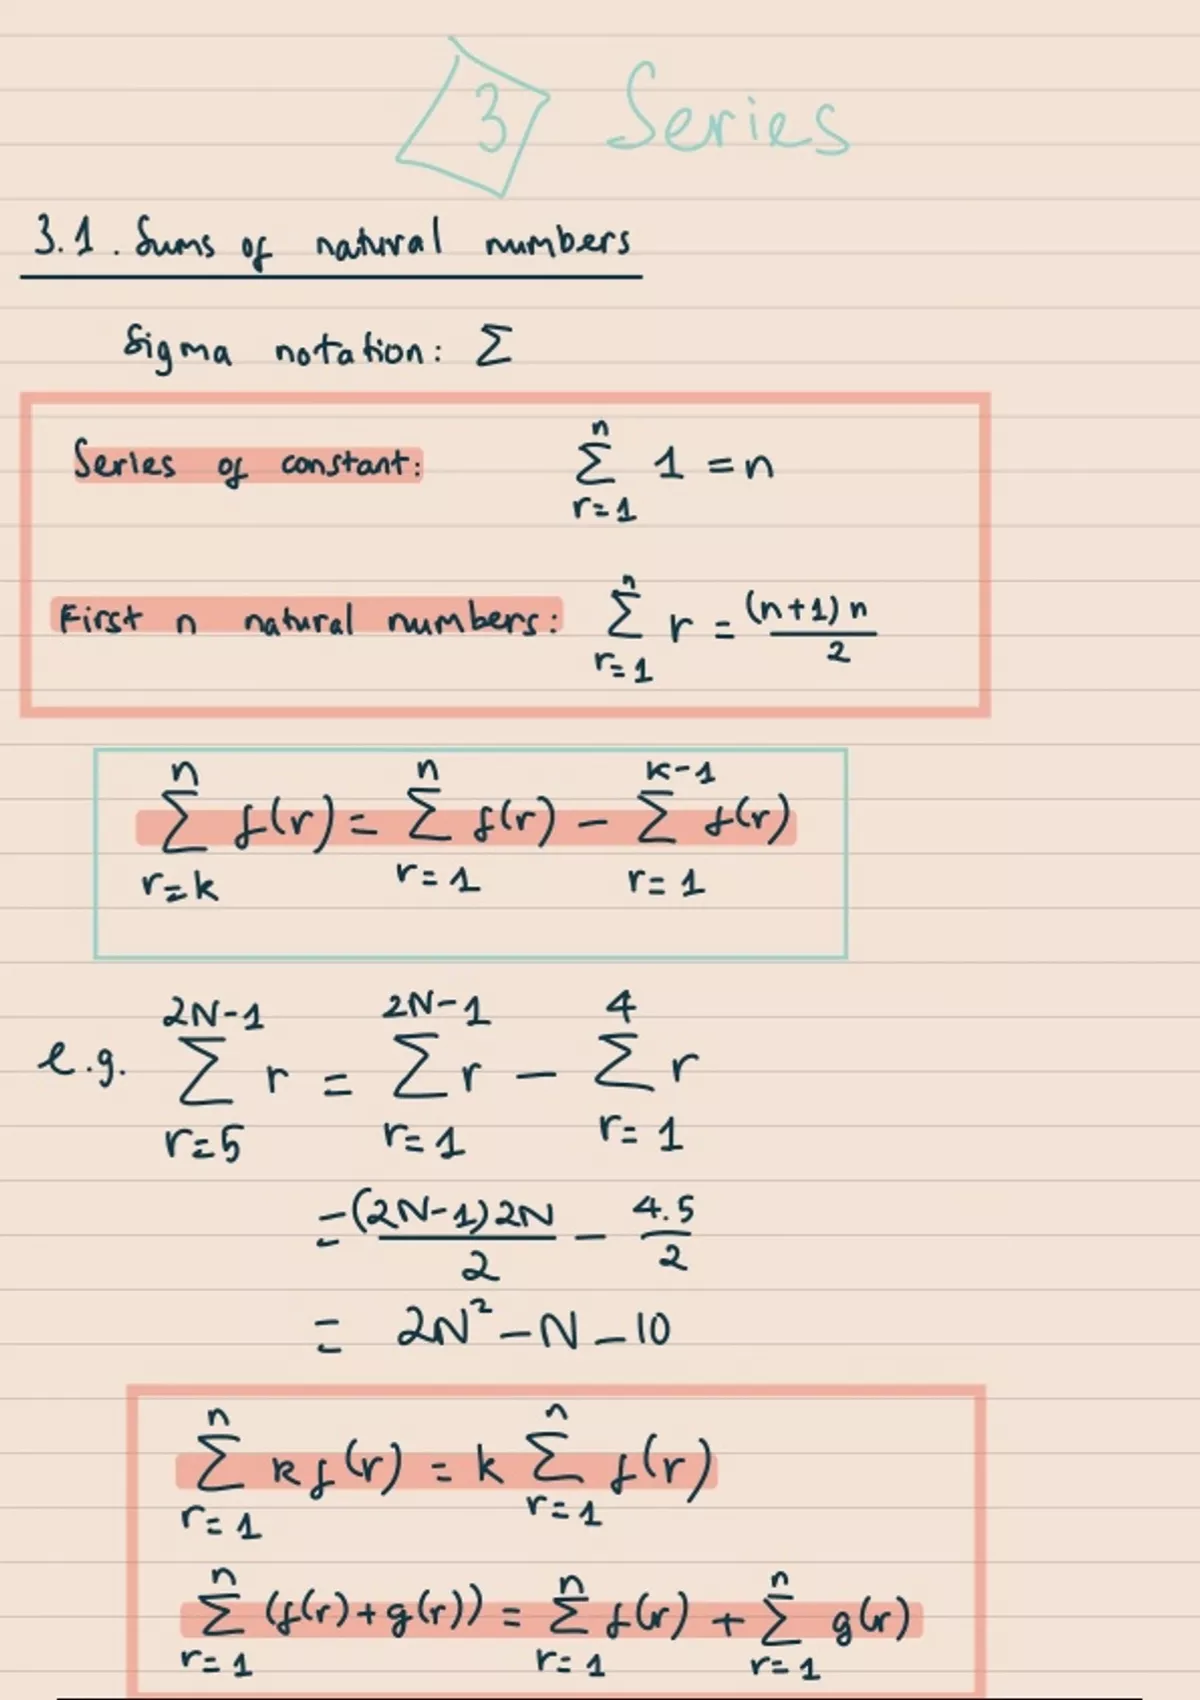 3 Series
3.1. Sums of natural numbers
Sigma notation: Σ
Series of constant: \sum_{r=1}^{n} 1 = n
First n natural numbers: \sum_{r=1}^{n} r = \frac{(n+1)n}{2}
\sum_{r=k}^{n} f(r) = \sum_{r=1}^{n} f(r) - \sum_{r=1}^{k-1} f(r)
e.g. \sum_{r=5}^{2N-1} r = \sum_{r=1}^{2N-1} r - \sum_{r=1}^{4} r
= \frac{(2N-1)2N}{2} - \frac{4.5}{2}
= 2N^2 - N - 10
\sum_{r=1}^{n} kf(r) = k \sum_{r=1}^{n} f(r)
\sum_{r=1}^{n} (f(r)+g(r)) = \sum_{r=1}^{n} f(r) + \sum_{r=1}^{n} g(r)